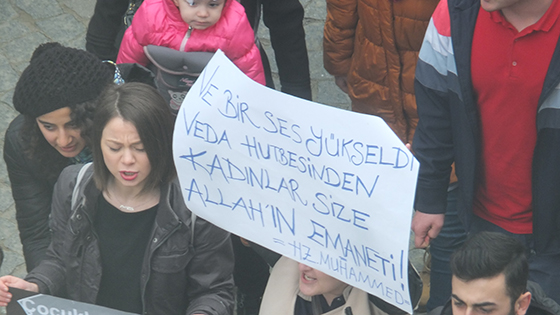 VE BİR SES YÜKSELDİ
VEDA HUTBESİNDEN
KADINLAR SİZE
ALLAH'IN EMANETİ!
= HZ. MUHAMMED =
Çocukl